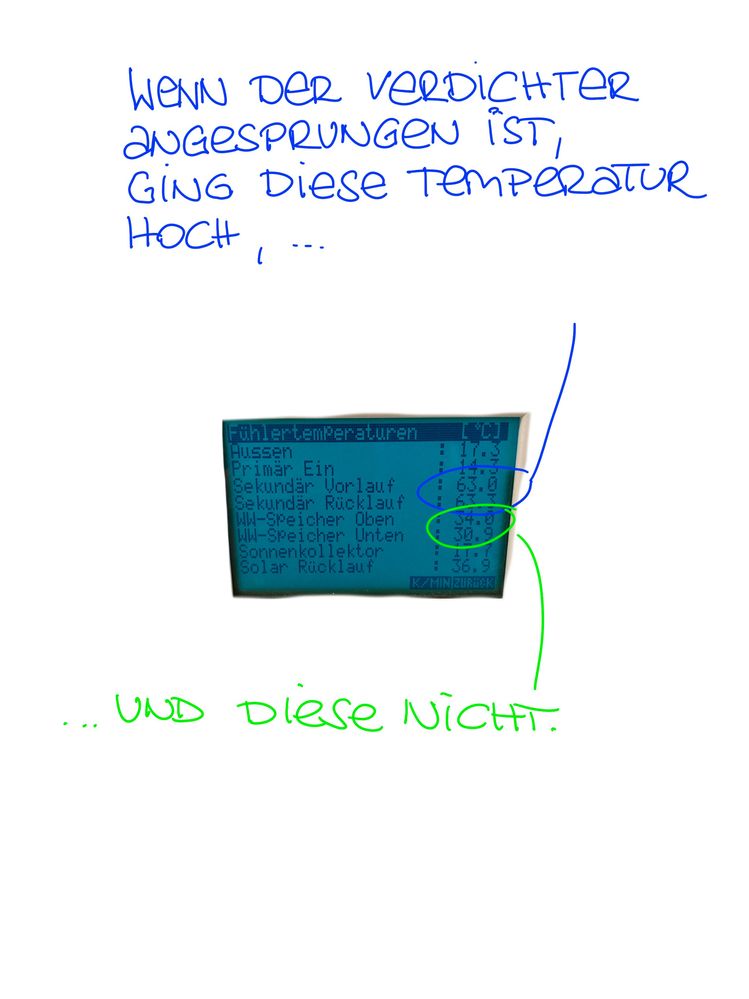 WENN DER VERDICHTER
ANGESPRUNGEN IST,
GING DIESE TEMPERATUR
HOCH, ...
Fühlertemperaturen [°C]
Aussen : 17.3
Primär Ein : 14.3
Sekundär Vorlauf : 63.0
Sekundär Rücklauf : 63.3
WW-Speicher Oben : 34.0
WW-Speicher Unten : 30.9
Sonnenkollektor : 17.7
Solar Rücklauf : 36.9
K/MIN ZURÜCK
... UND DIESE NICHT.